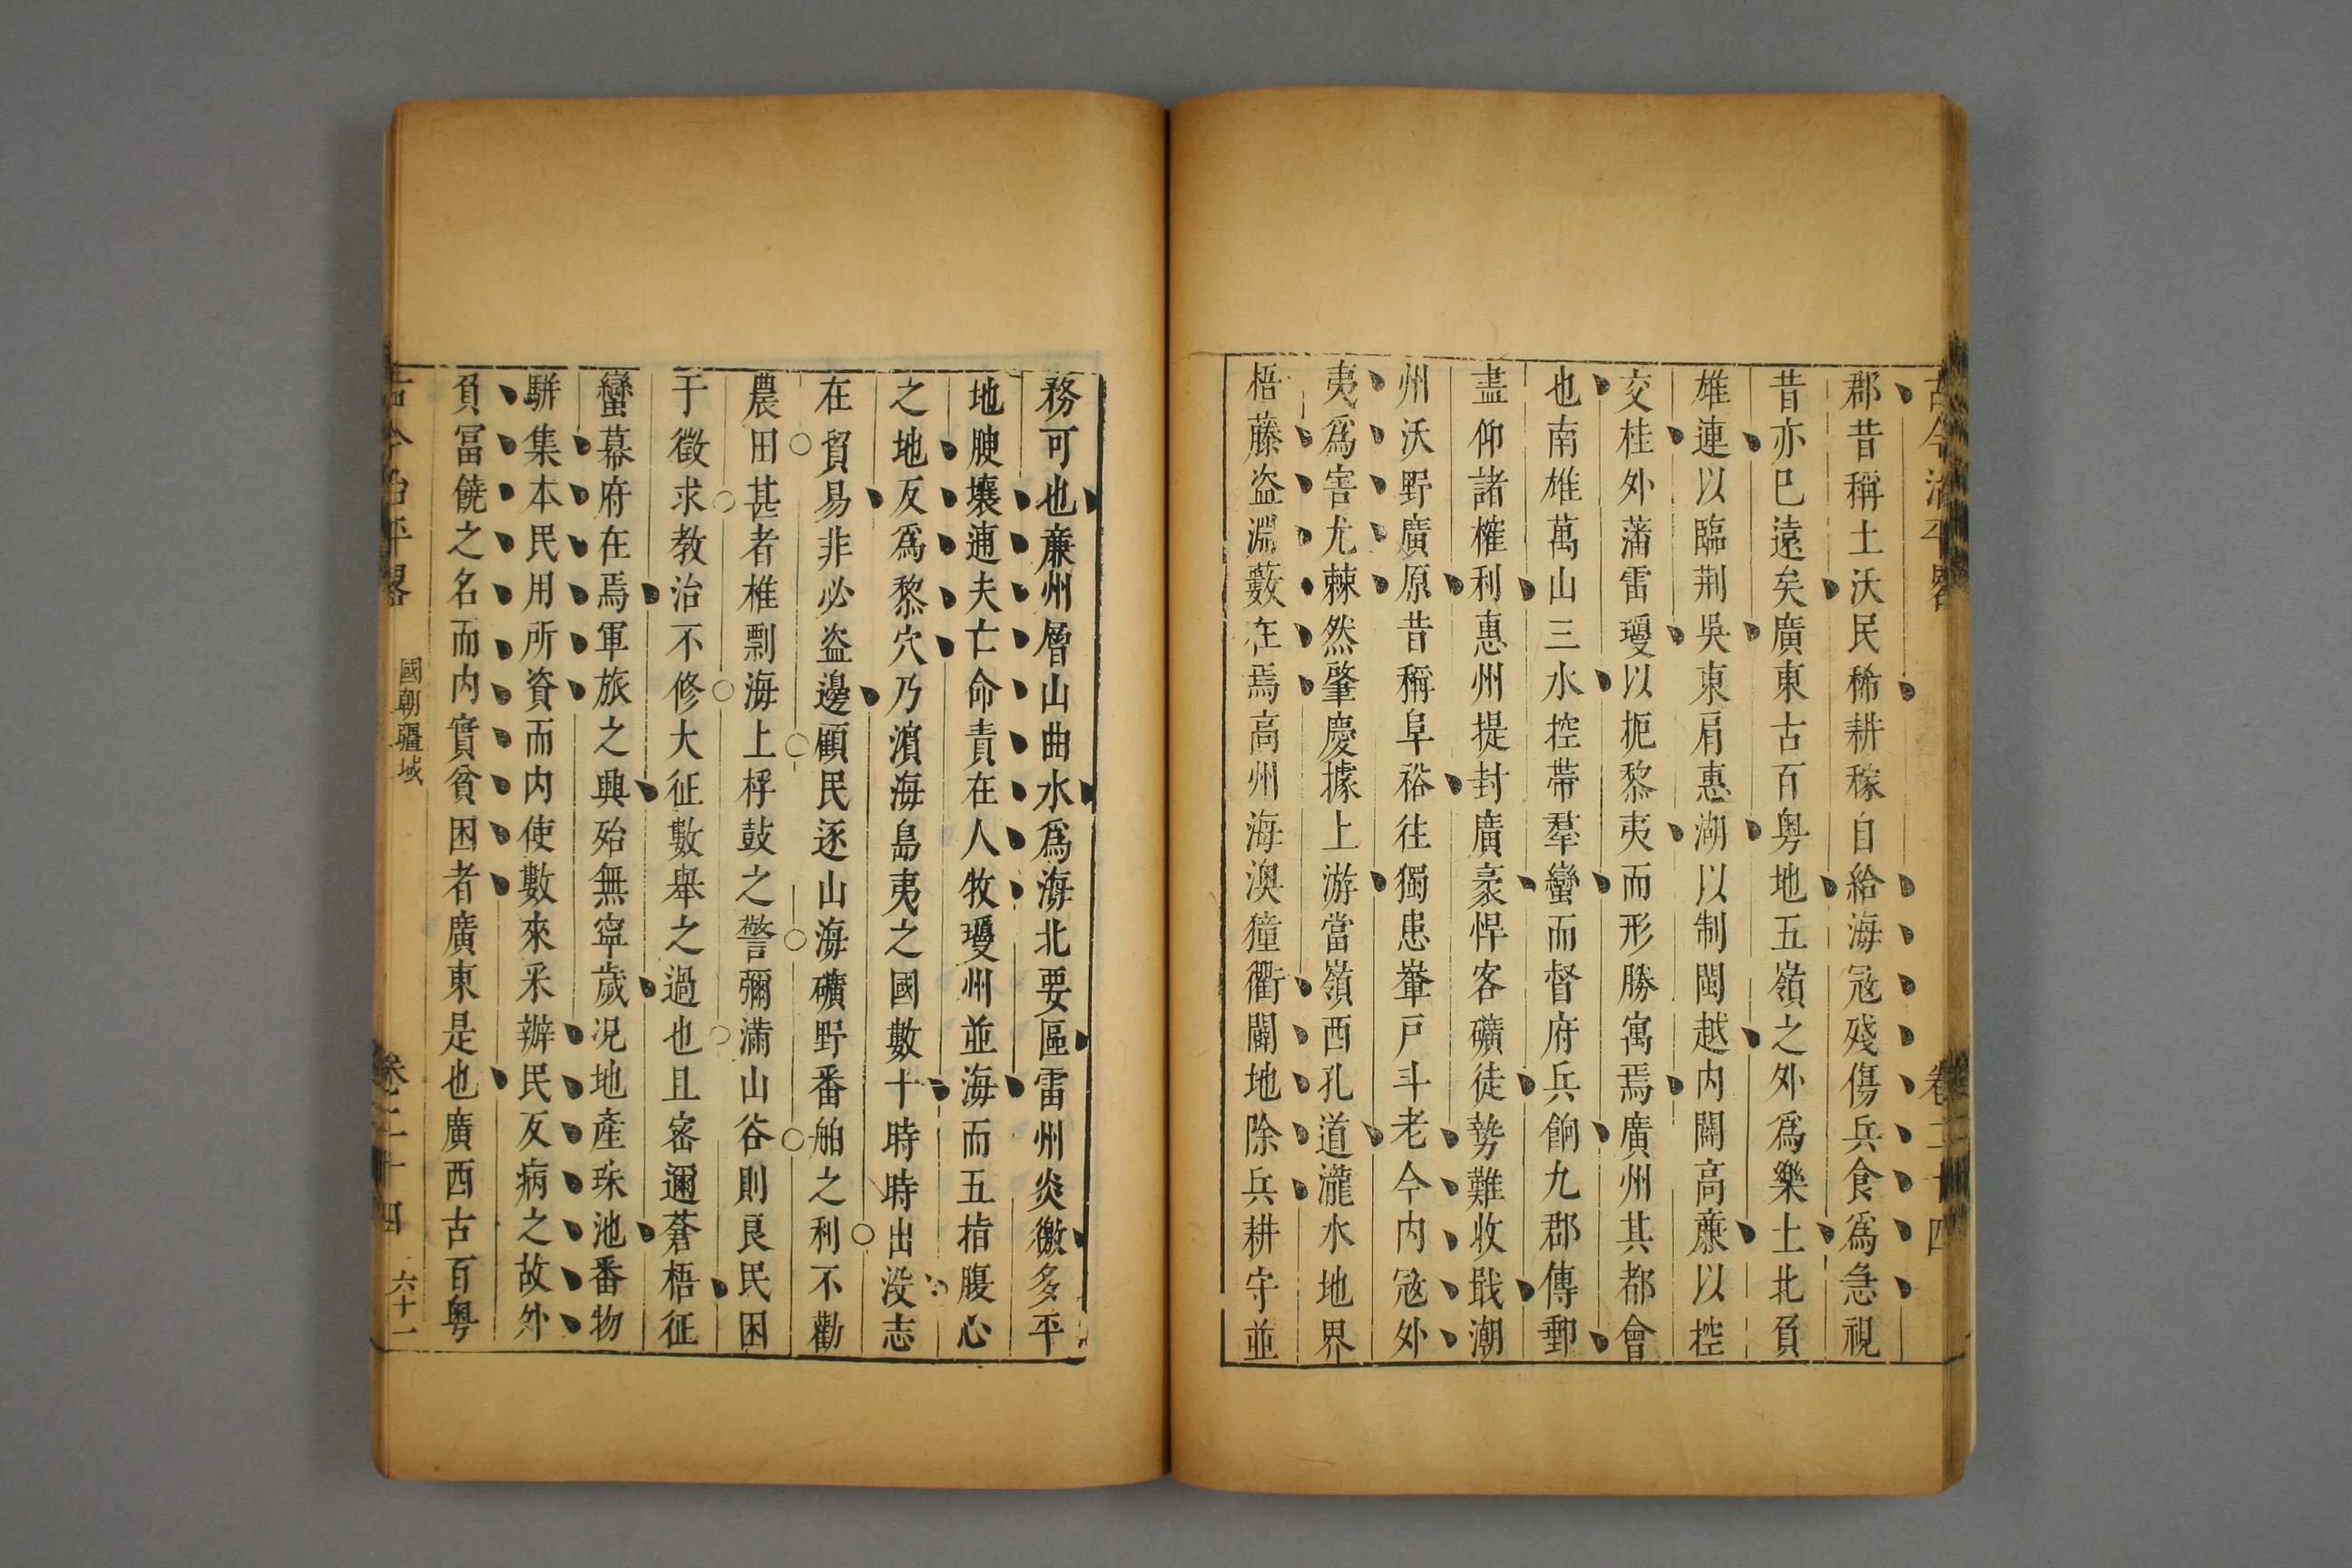 古今治平畧 卷二十四
郡昔稱土沃民稀耕稼自給海冦殘傷兵食爲急視
昔亦巳遠矣廣東古百粤地五嶺之外爲樂土北負
雄連以臨荆吳東肩惠潮以制閩越内闢高亷以控
交桂外藩雷瓊以扼黎夷而形勝寓焉廣州其都會
也南雄萬山三水控帶羣蠻而督府兵餉九郡傳郵
盡仰諸榷利惠州提封廣豪悍客礦徒勢難收戢潮
州沃野廣原昔稱阜裕徃獨患輋戸斗老今内冦外
夷爲害尤棘然肇慶據上游當嶺西孔道瀧水地界
梧藤盗淵藪在焉高州海澳獞衢闢地除兵耕守並
務可也亷州層山曲水爲海北要區雷州炎徼多平
地腴壤逋夫亡命責在人牧瓊州並海而五指腹心
之地反爲黎穴乃濵海島夷之國數十時時出沒志
在貿易非必盗邊顧民逐山海礦野番舶之利不勸
農田甚者椎剽海上桴鼓之警彌滿山谷則良民困
于徵求教治不修大征數舉之過也且密邇蒼梧征
蠻幕府在焉軍旅之興殆無寧歲况地產珠池番物
駢集本民用所資而内使數來采辦民反病之故外
負冨饒之名而内實貧困者廣東是也廣西古百粤
古今治平畧 國朝疆域 卷二十四 六十一